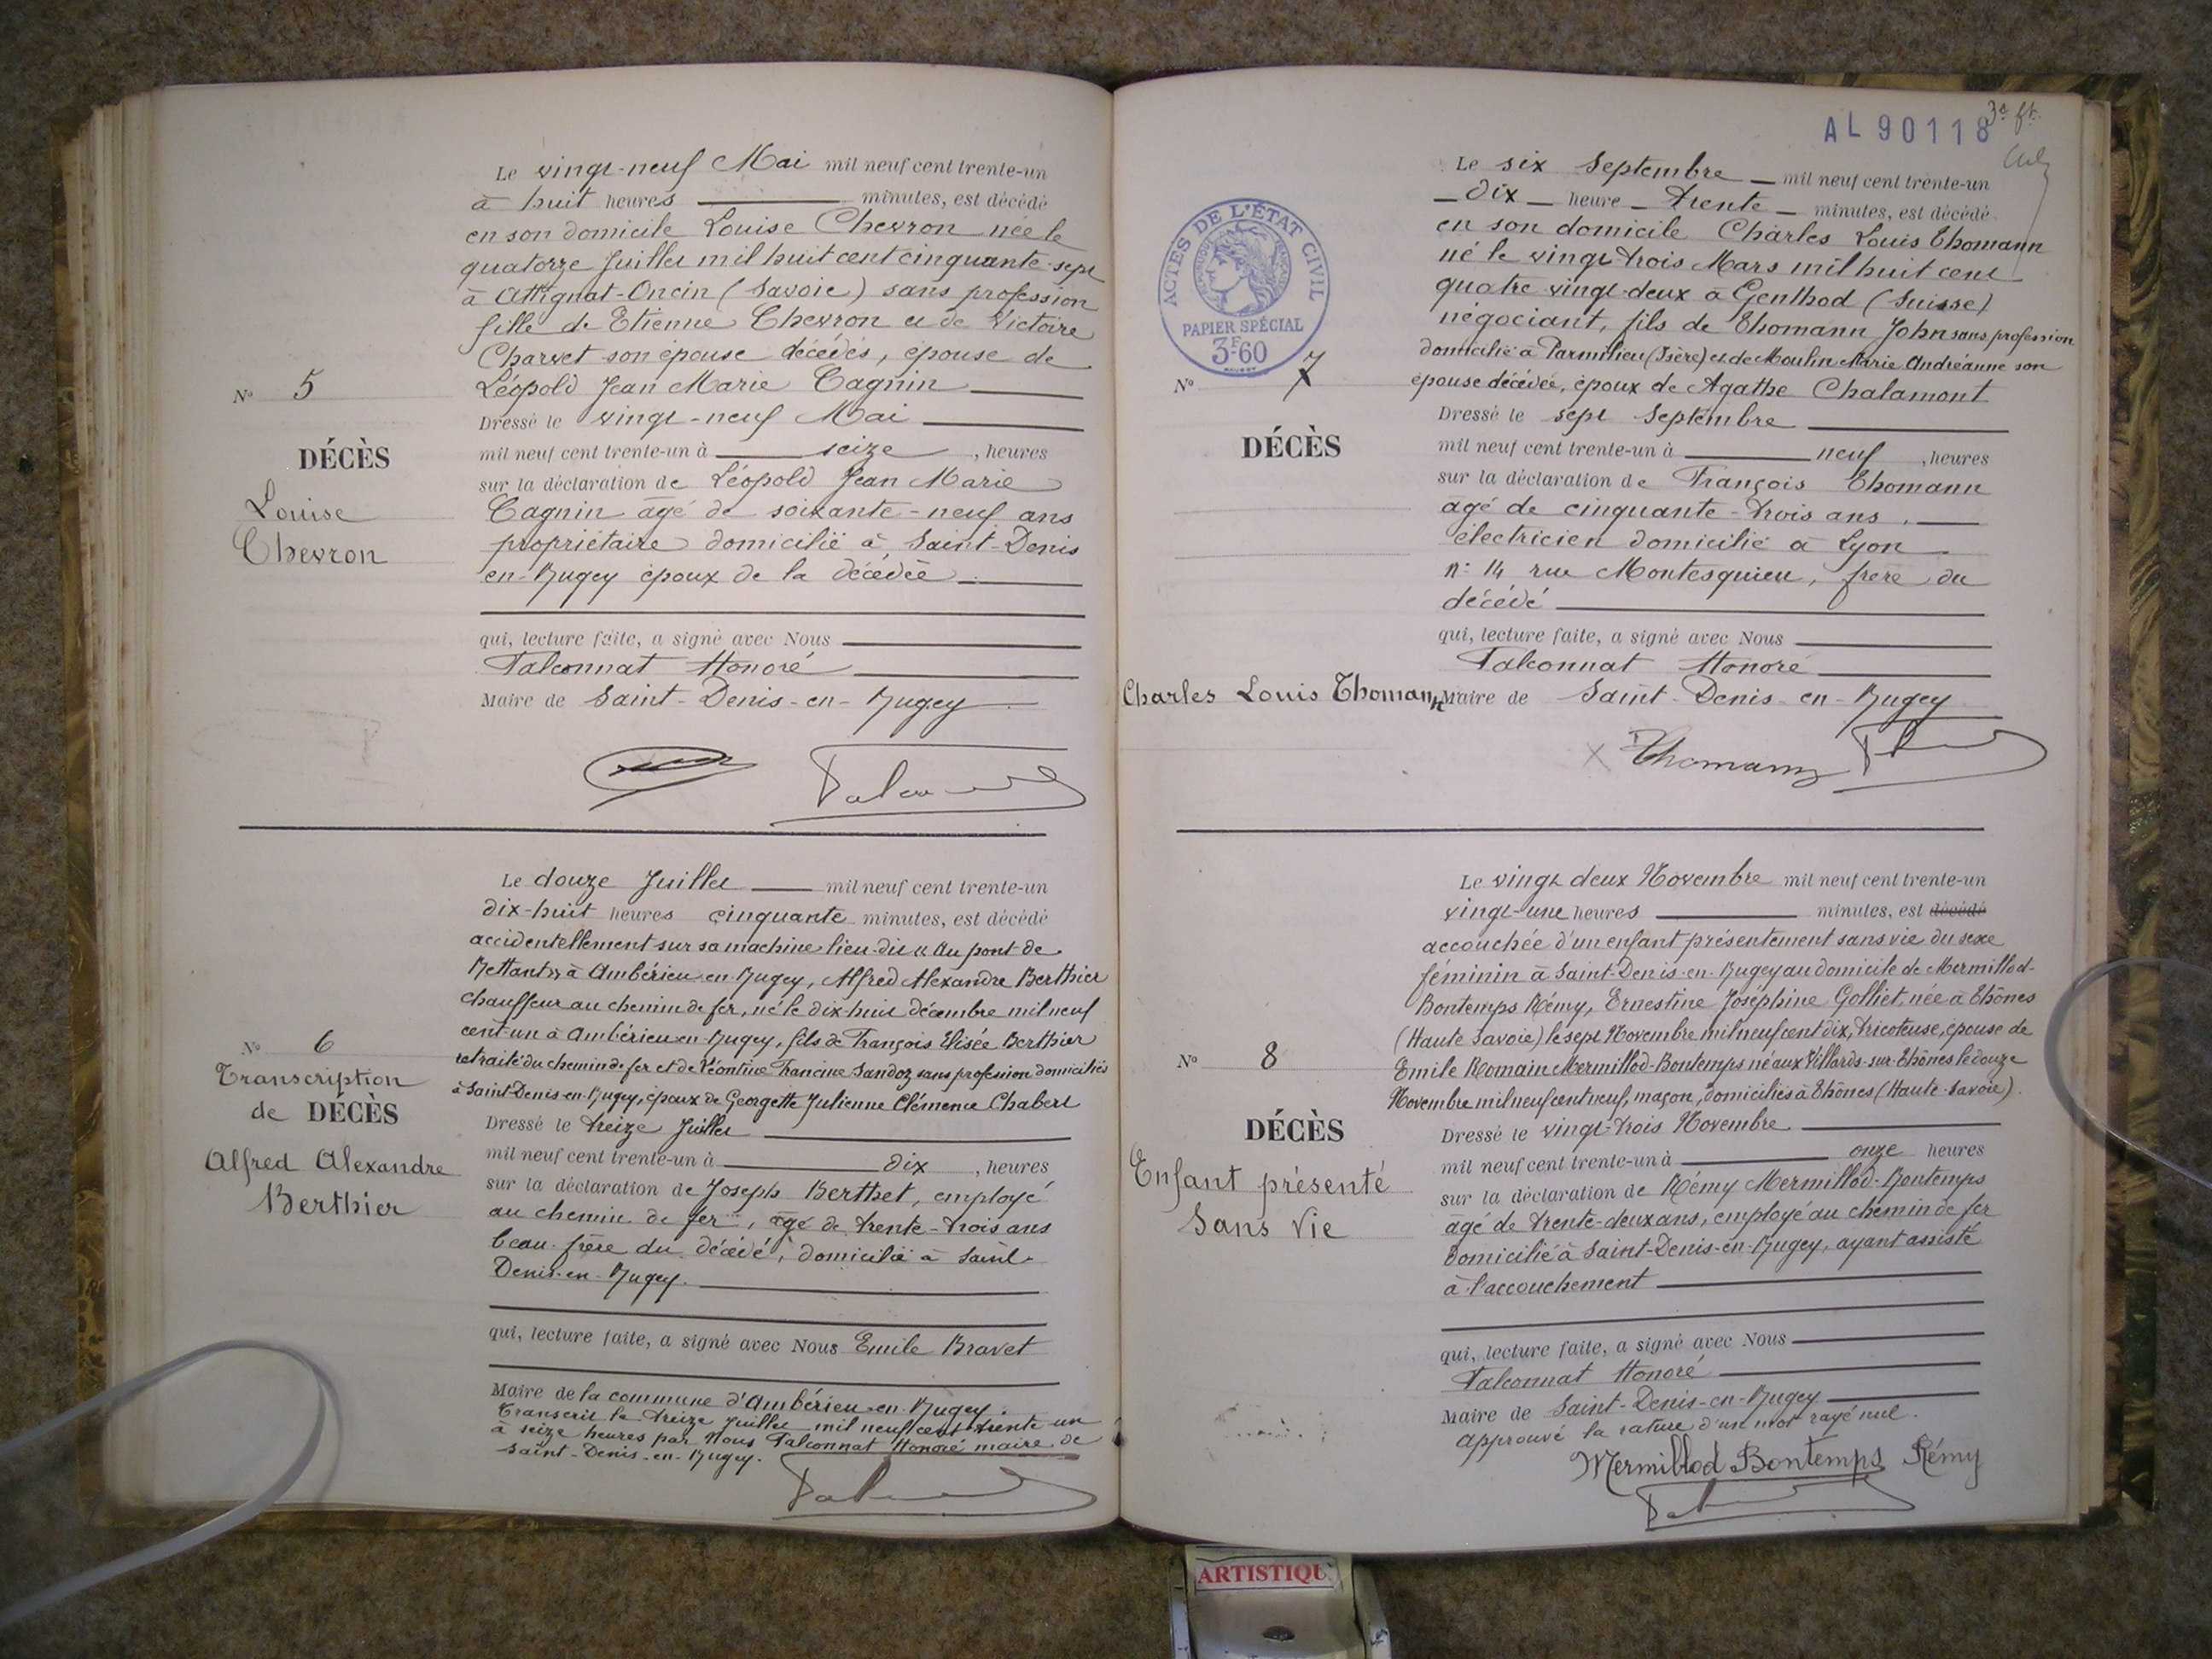 Le vingt-neuf Mai mil neuf cent trente-un
à huit heures minutes, est décédé
en son domicile Louise Chevron née le
quatorze Juillet mil huit cent cinquante-sept
à Attignat-Oncin (Savoie) sans profession
fille de Etienne Chevron et de Victoire
Charvet son épouse décédés, épouse de
Léopold Jean Marie Cagnin
N° 5
Dressé le vingt-neuf Mai
DÉCÈS
mil neuf cent trente-un à seize, heures
sur la déclaration de Léopold Jean Marie
Louise
Cagnin âgé de soixante-neuf ans
Chevron
propriétaire domicilié à Saint-Denis
en-Bugey époux de la décédée
qui, lecture faite, a signé avec Nous
Falconnat Honoré
Maire de Saint-Denis-en-Bugey
Le douze Juillet mil neuf cent trente-un
dix-huit heures cinquante minutes, est décédé
accidentellement sur sa machine lieu-dit "Au pont de
Bettant" à Ambérieu-en-Bugey, Alfred Alexandre Berthier
chauffeur au chemin de fer, né le dix-huit décembre mil neuf
cent-un à Ambérieu-en-Bugey, fils de François Elisée Berthier
retraité du chemin de fer et de Léontine Francine Sandoz sans profession domiciliés
à Saint-Denis-en-Bugey, époux de Georgette Julienne Clémence Chabert
N° 6
Transcription
de DÉCÈS
Alfred Alexandre
Berthier
Dressé le treize Juillet
mil neuf cent trente-un à dix, heures
sur la déclaration de Joseph Berthet, employé
au chemin de fer, âgé de trente-trois ans
beau-frère du décédé, domicilié à Saint-
Denis-en-Bugey.
qui, lecture faite, a signé avec Nous Emile Bravet
Maire de la commune d'Ambérieu-en-Bugey.
Transcrit le treize Juillet mil neuf cent trente un
à seize heures par Nous Falconnat Honoré maire de
Saint-Denis-en-Bugey.
AL 90118
3e ft.
ACTES DE L'ÉTAT CIVIL
PAPIER SPÉCIAL
3F60
Le six Septembre mil neuf cent trente-un
dix heure trente minutes, est décédé
en son domicile Charles Louis Thomann
né le vingt trois Mars mil huit cent
quatre vingt-deux à Genthod (Suisse)
négociant, fils de Thomann John sans profession
domicilié à Parmilieu (Isère) et de Moulin Marie Andréanne son
épouse décédée, époux de Agathe Chalamont
N° 7
Dressé le sept Septembre
DÉCÈS
mil neuf cent trente-un à neuf, heures
sur la déclaration de François Thomann
âgé de cinquante-trois ans,
électricien domicilié à Lyon
n° 14 rue Montesquieu, frère du
décédé
qui, lecture faite, a signé avec Nous
Falconnat Honoré
Charles Louis Thomann
Maire de Saint-Denis-en-Bugey
Thomann
Le vingt deux Novembre mil neuf cent trente-un
vingt-une heures minutes, est décédé
accouchée d'un enfant présentement sans vie du sexe
féminin à Saint-Denis-en-Bugey au domicile de Mermillod-
Bontemps Rémy, Ernestine Joséphine Golliet, née à Thônes
(Haute Savoie) le sept Novembre mil neuf cent dix, tricoteuse, épouse de
Emile Romain Mermillod-Bontemps né aux Villards-sur-Thônes le douze
Novembre mil neuf cent neuf, maçon, domiciliés à Thônes (Haute-Savoie).
N° 8
DÉCÈS
Enfant présenté
Sans Vie
Dressé le vingt-trois Novembre
mil neuf cent trente-un à onze heures
sur la déclaration de Rémy Mermillod-Bontemps
âgé de trente-deux ans, employé au chemin de fer
domicilié à Saint-Denis-en-Bugey, ayant assisté
à l'accouchement
qui, lecture faite, a signé avec Nous
Falconnat Honoré
Maire de Saint-Denis-en-Bugey
Approuvé la rature d'un mot rayé nul.
Mermillod Bontemps Rémy
ARTISTIQU